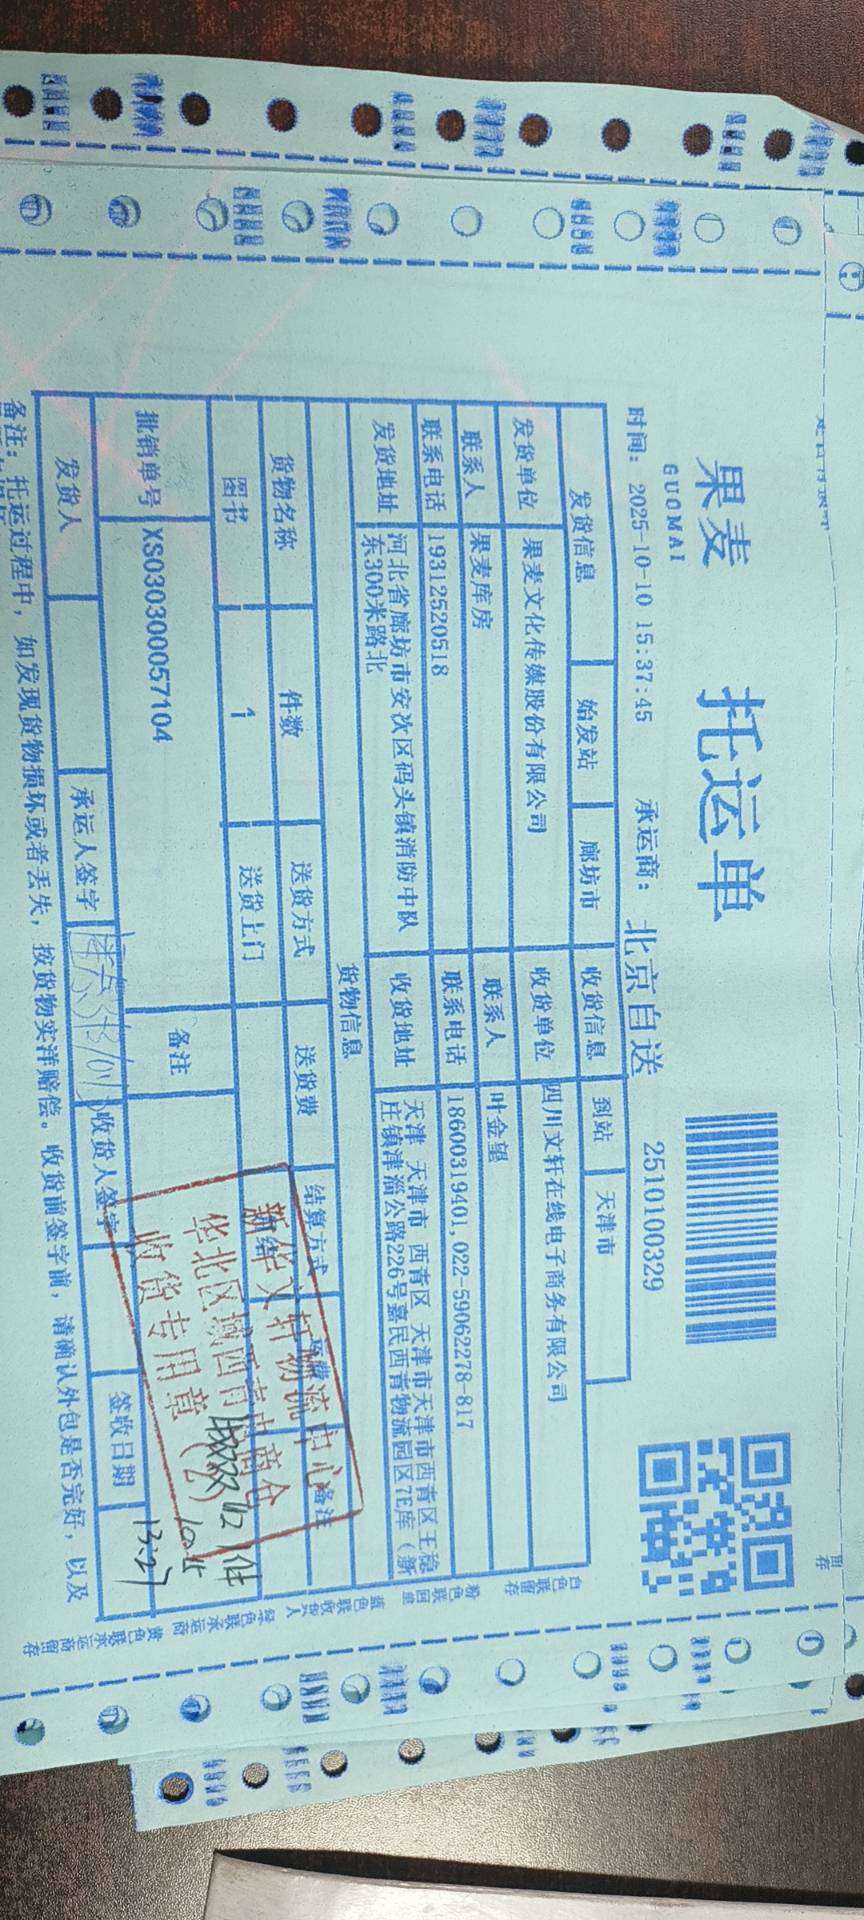 果麦 托运单
GUOMAI
时间: 2025-10-10 15:37:45 承运商: 北京自送 2510100329
发货信息 始发站 廊坊市 收货信息 到站 天津市
发货单位 果麦文化传媒股份有限公司 收货单位 四川文轩在线电子商务有限公司
联系人 果麦库房 联系人 叶金望
联系电话 19312520518 联系电话 18600319401,022-59062278-817
发货地址 河北省廊坊市安次区码头镇消防中队东300米路北 收货地址 天津 天津市 西青区 天津市天津市西青区王稳庄镇津淄公路226号嘉民西青物流园区7E库（新
货物信息
货物名称 件数 送货方式 送货费 结算方式 备注
图书 1 送货上门
批销单号 XS030300057104 备注
发货人 承运人签字 收货人签字 签收日期
新华文轩物流中心
华北区域西青电商仓
收货专用章
(2)
收1件
13:27
备注: 托运过程中，如发现货物损坏或者丢失，按货物实洋赔偿。收货前签字前，请确认外包是否完好，以及
白色联留存
粉色联回单
蓝色联收货人
绿色联承运商
黄色联承运商留存